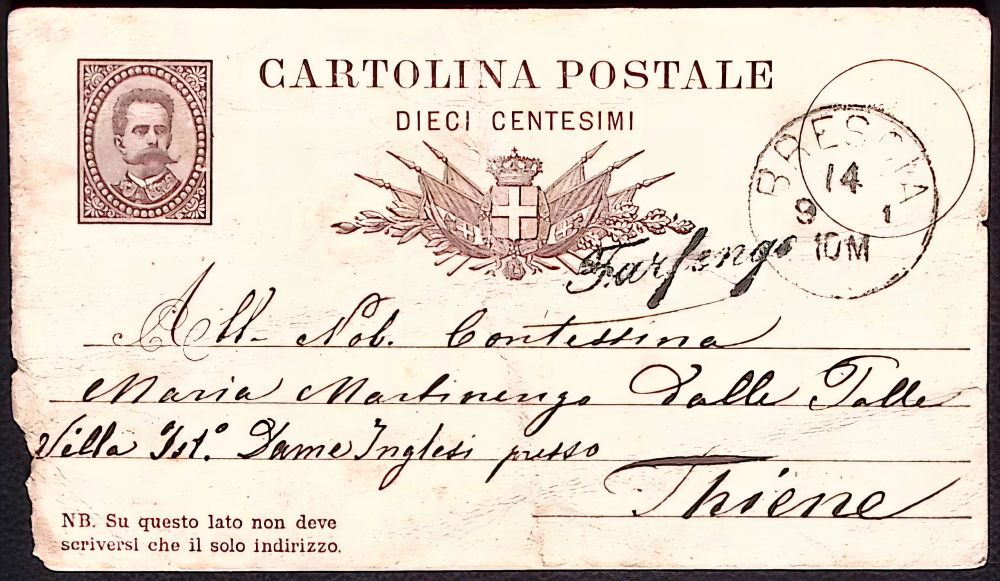 CARTOLINA POSTALE
DIECI CENTESIMI
BRESCIA
14
9 1
10M
Farfengo
All- Nob. Contessina
Maria Martinengo Dalle Palle
Villa Ist.º Dame Inglesi presso
Thiene
NB. Su questo lato non deve
scriversi che il solo indirizzo.